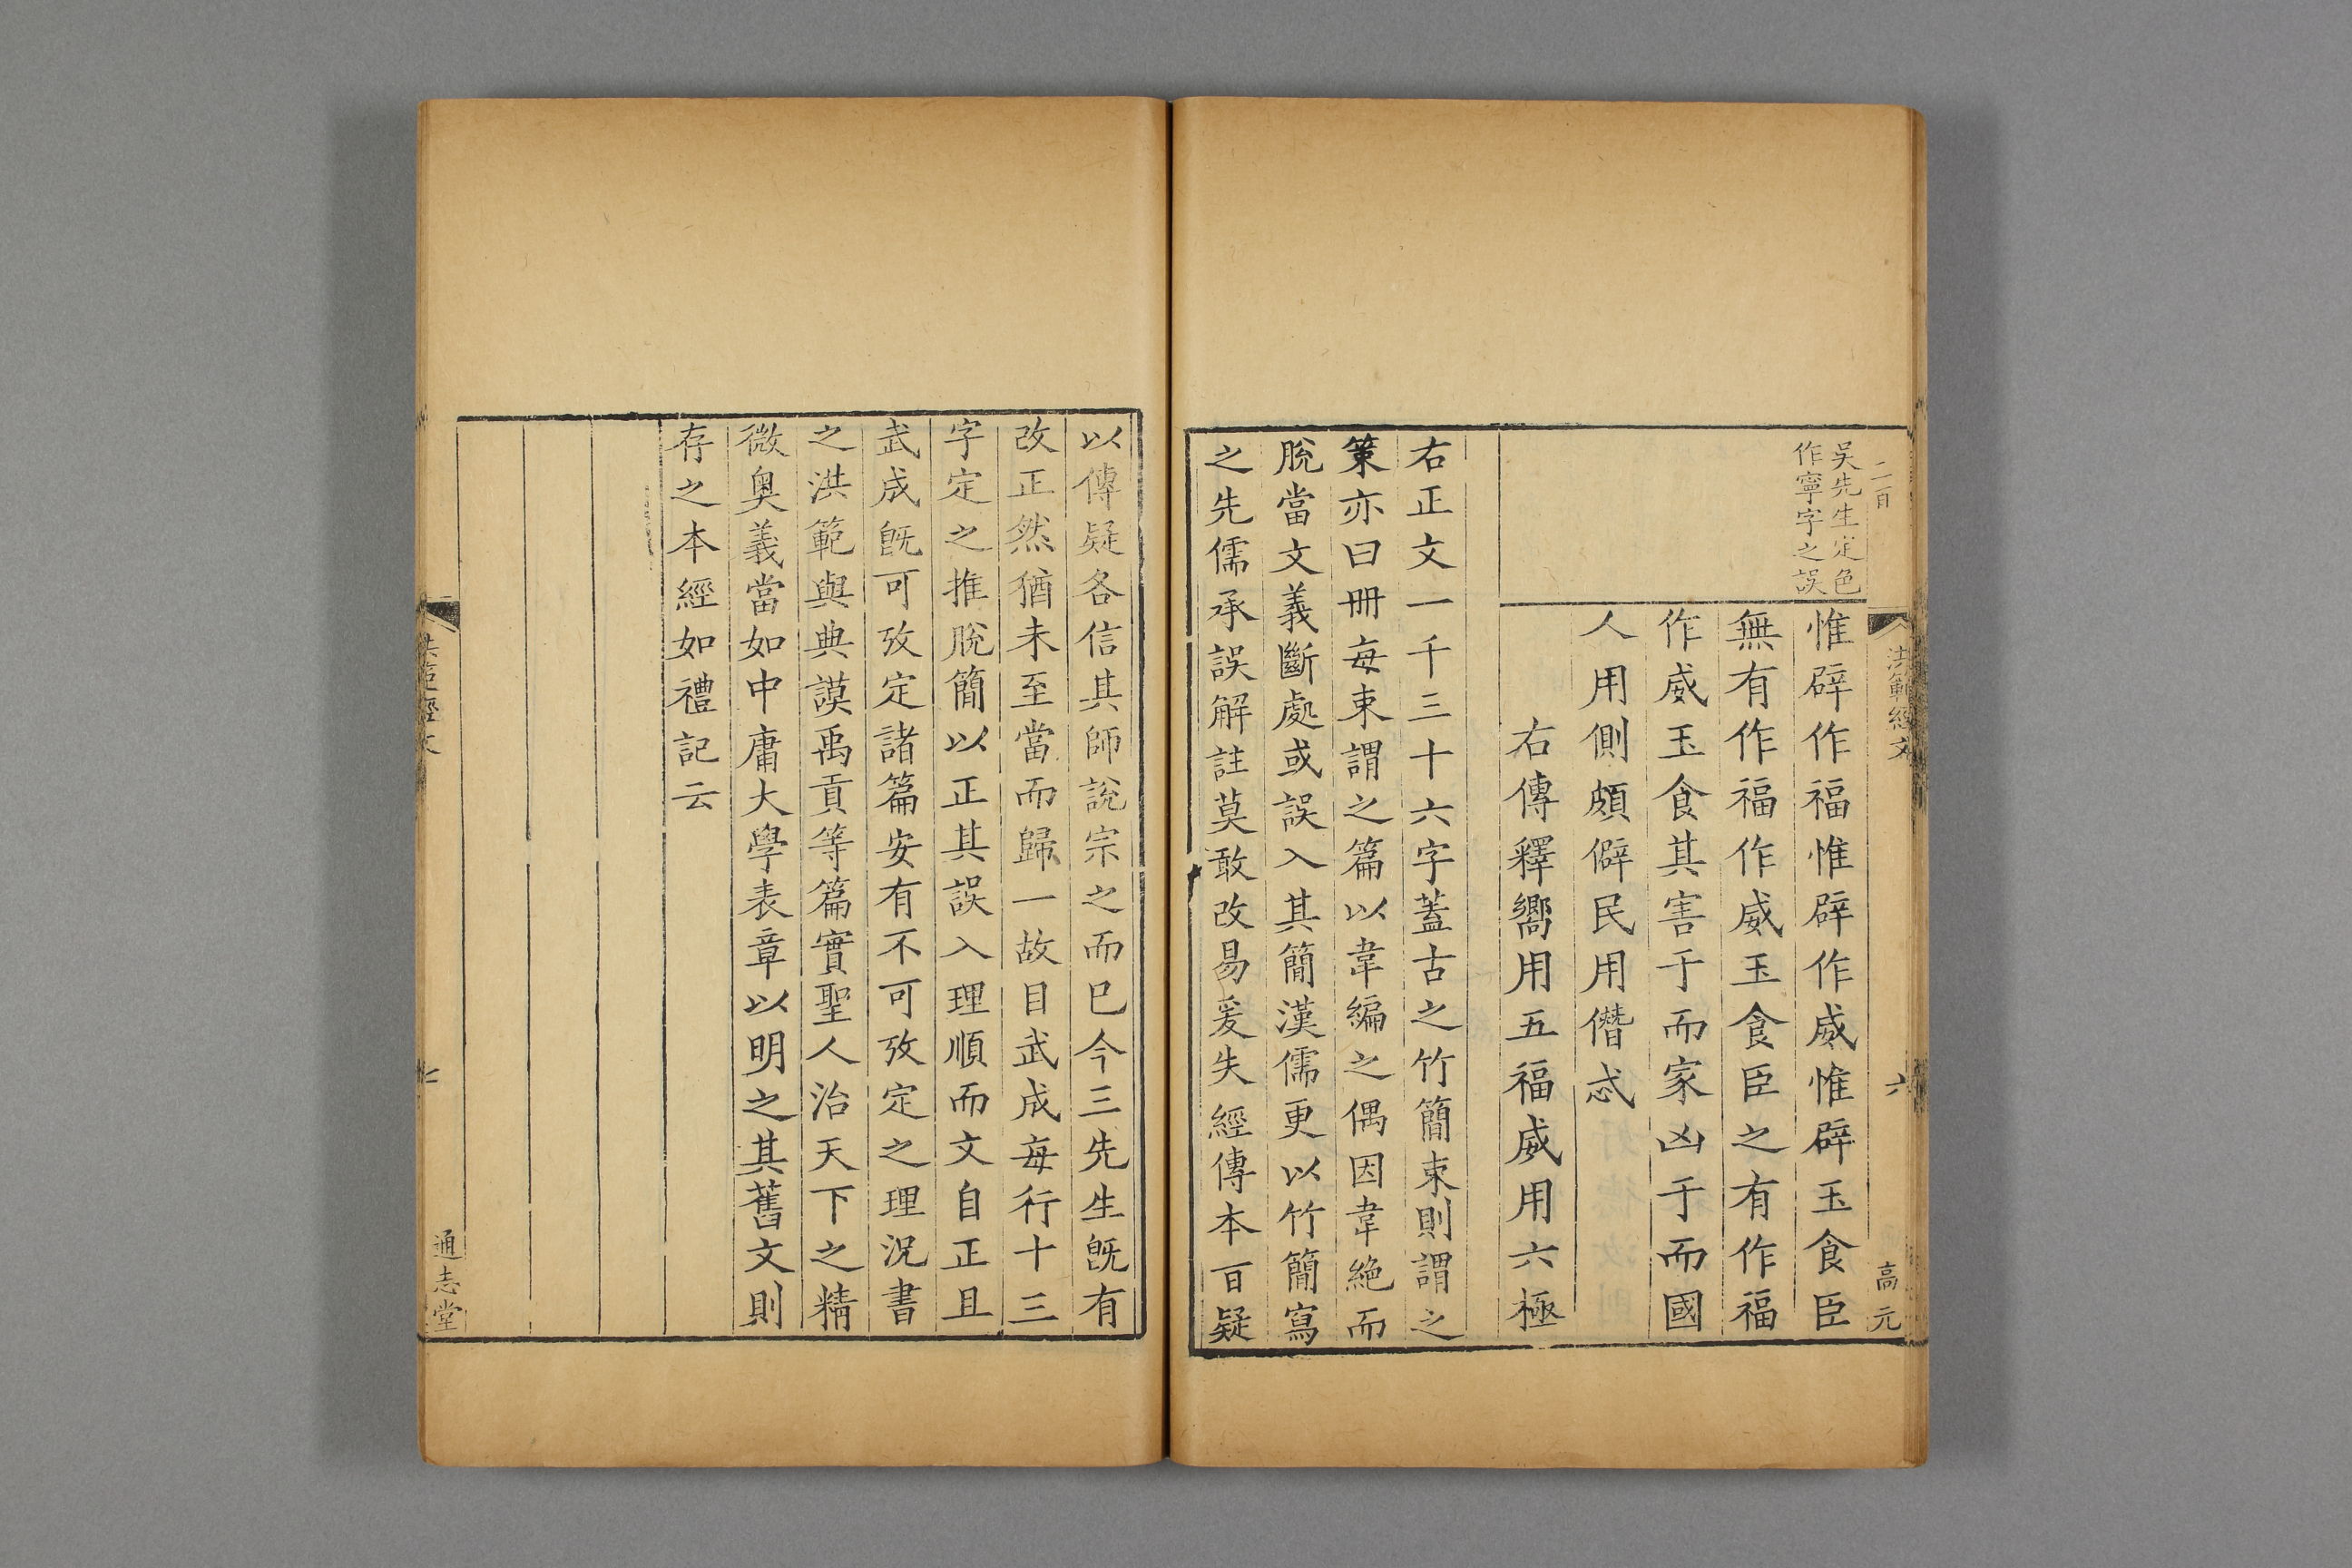 二百
洪範經文
六
高元
吳先生定色
作寧字之誤
惟辟作福惟辟作威惟辟玉食臣
無有作福作威玉食臣之有作福
作威玉食其害于而家凶于而國
人用側頗僻民用僭忒
右傳釋嚮用五福威用六極
右正文一千三十六字蓋古之竹簡束則謂之
策亦曰冊每束謂之篇以韋編之偶因韋絶而
脫當文義斷處或誤入其簡漢儒更以竹簡寫
之先儒承誤解註莫敢改易爰失經傳本百疑
以傳疑各信其師說宗之而已今三先生旣有
改正然猶未至當而歸一故目武成每行十三
字定之推脫簡以正其誤入理順而文自正且
武成旣可攷定諸篇安有不可攷定之理況書
之洪範與典謨禹貢等篇實聖人治天下之精
微奧義當如中庸大學表章以明之其舊文則
存之本經如禮記云
洪範經文
七
通志堂